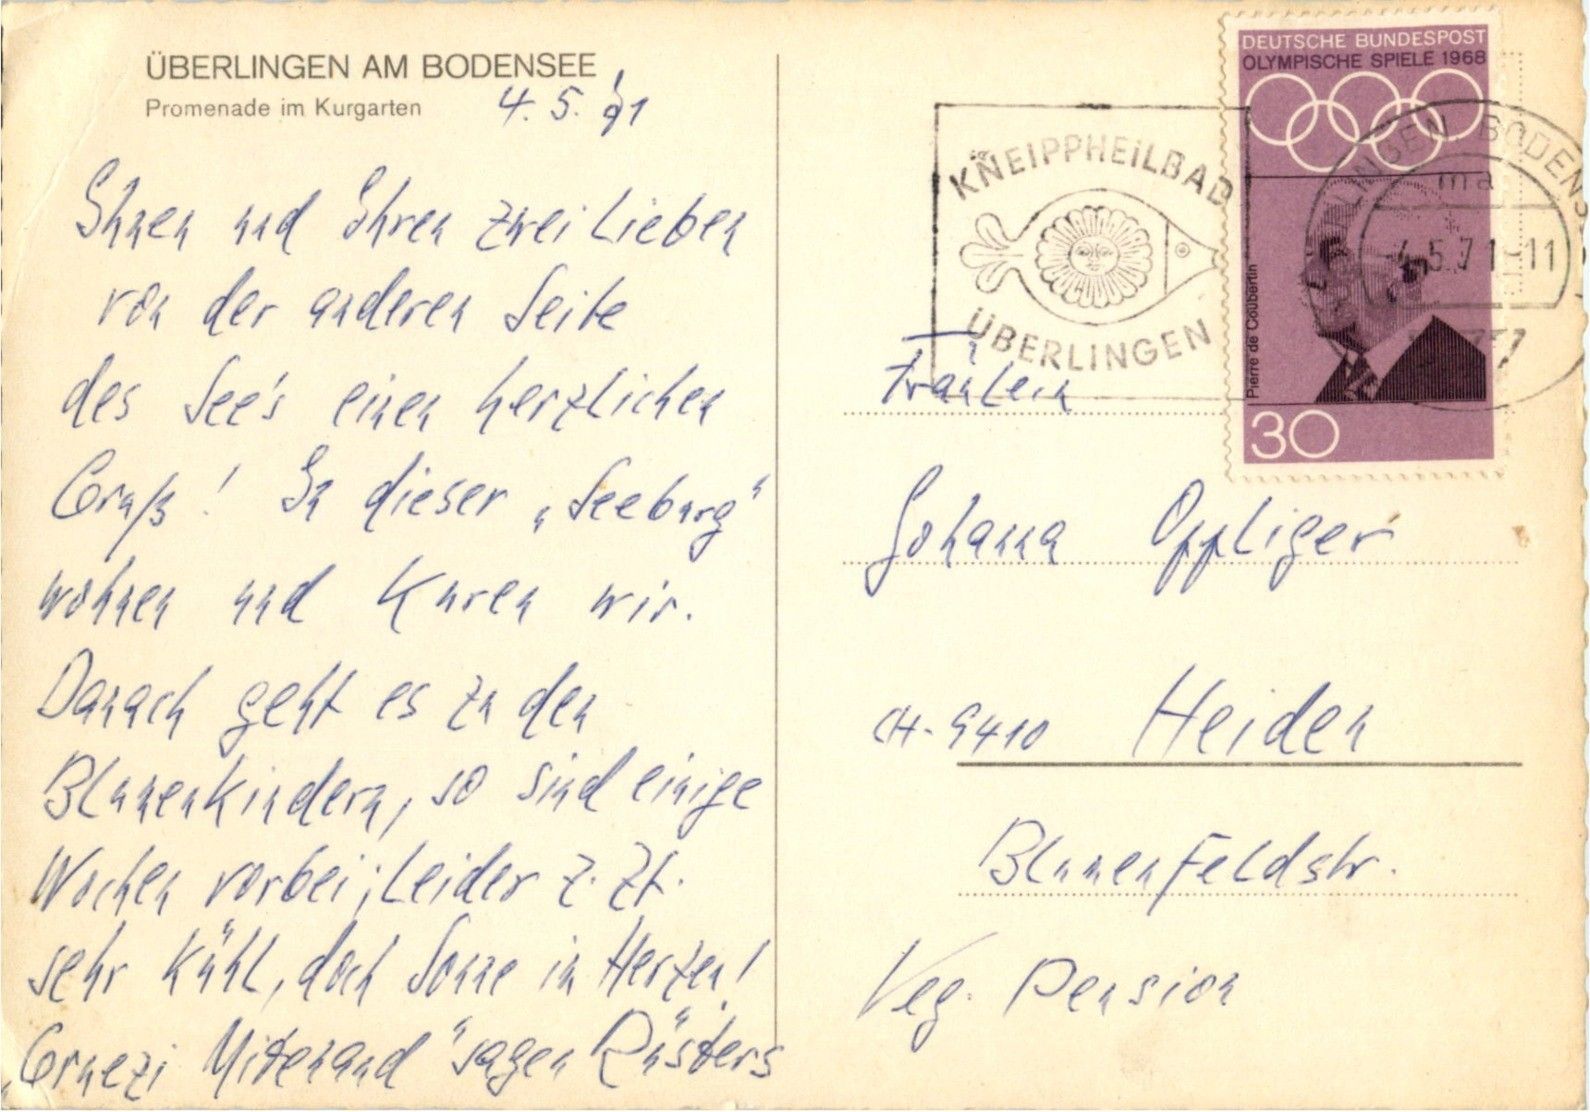 ÜBERLINGEN AM BODENSEE
Promenade im Kurgarten
4. 5. 71
Ihnen und Ihren zwei Lieben
von der anderen Seite
des See's einen herzlichen
Gruß! In dieser „Seeburg"
wohnen und Kuren wir.
Danach geht es zu den
Blumenkindern, so sind einige
Wochen vorbei; Leider z. Zt.
sehr Kühl, doch Sonne im Herzen!
„Gruezi Mitenand" sagen Rüsters
KNEIPPHEILBAD
ÜBERLINGEN
DEUTSCHE BUNDESPOST
OLYMPISCHE SPIELE 1968
Pierre de Coubertin
30
LINGEN, BODENS
ma
4.5.71-11
Fräulein
Johanna Oppliger
CH-9410 Heiden
Blumenfeldstr.
Veg. Pension